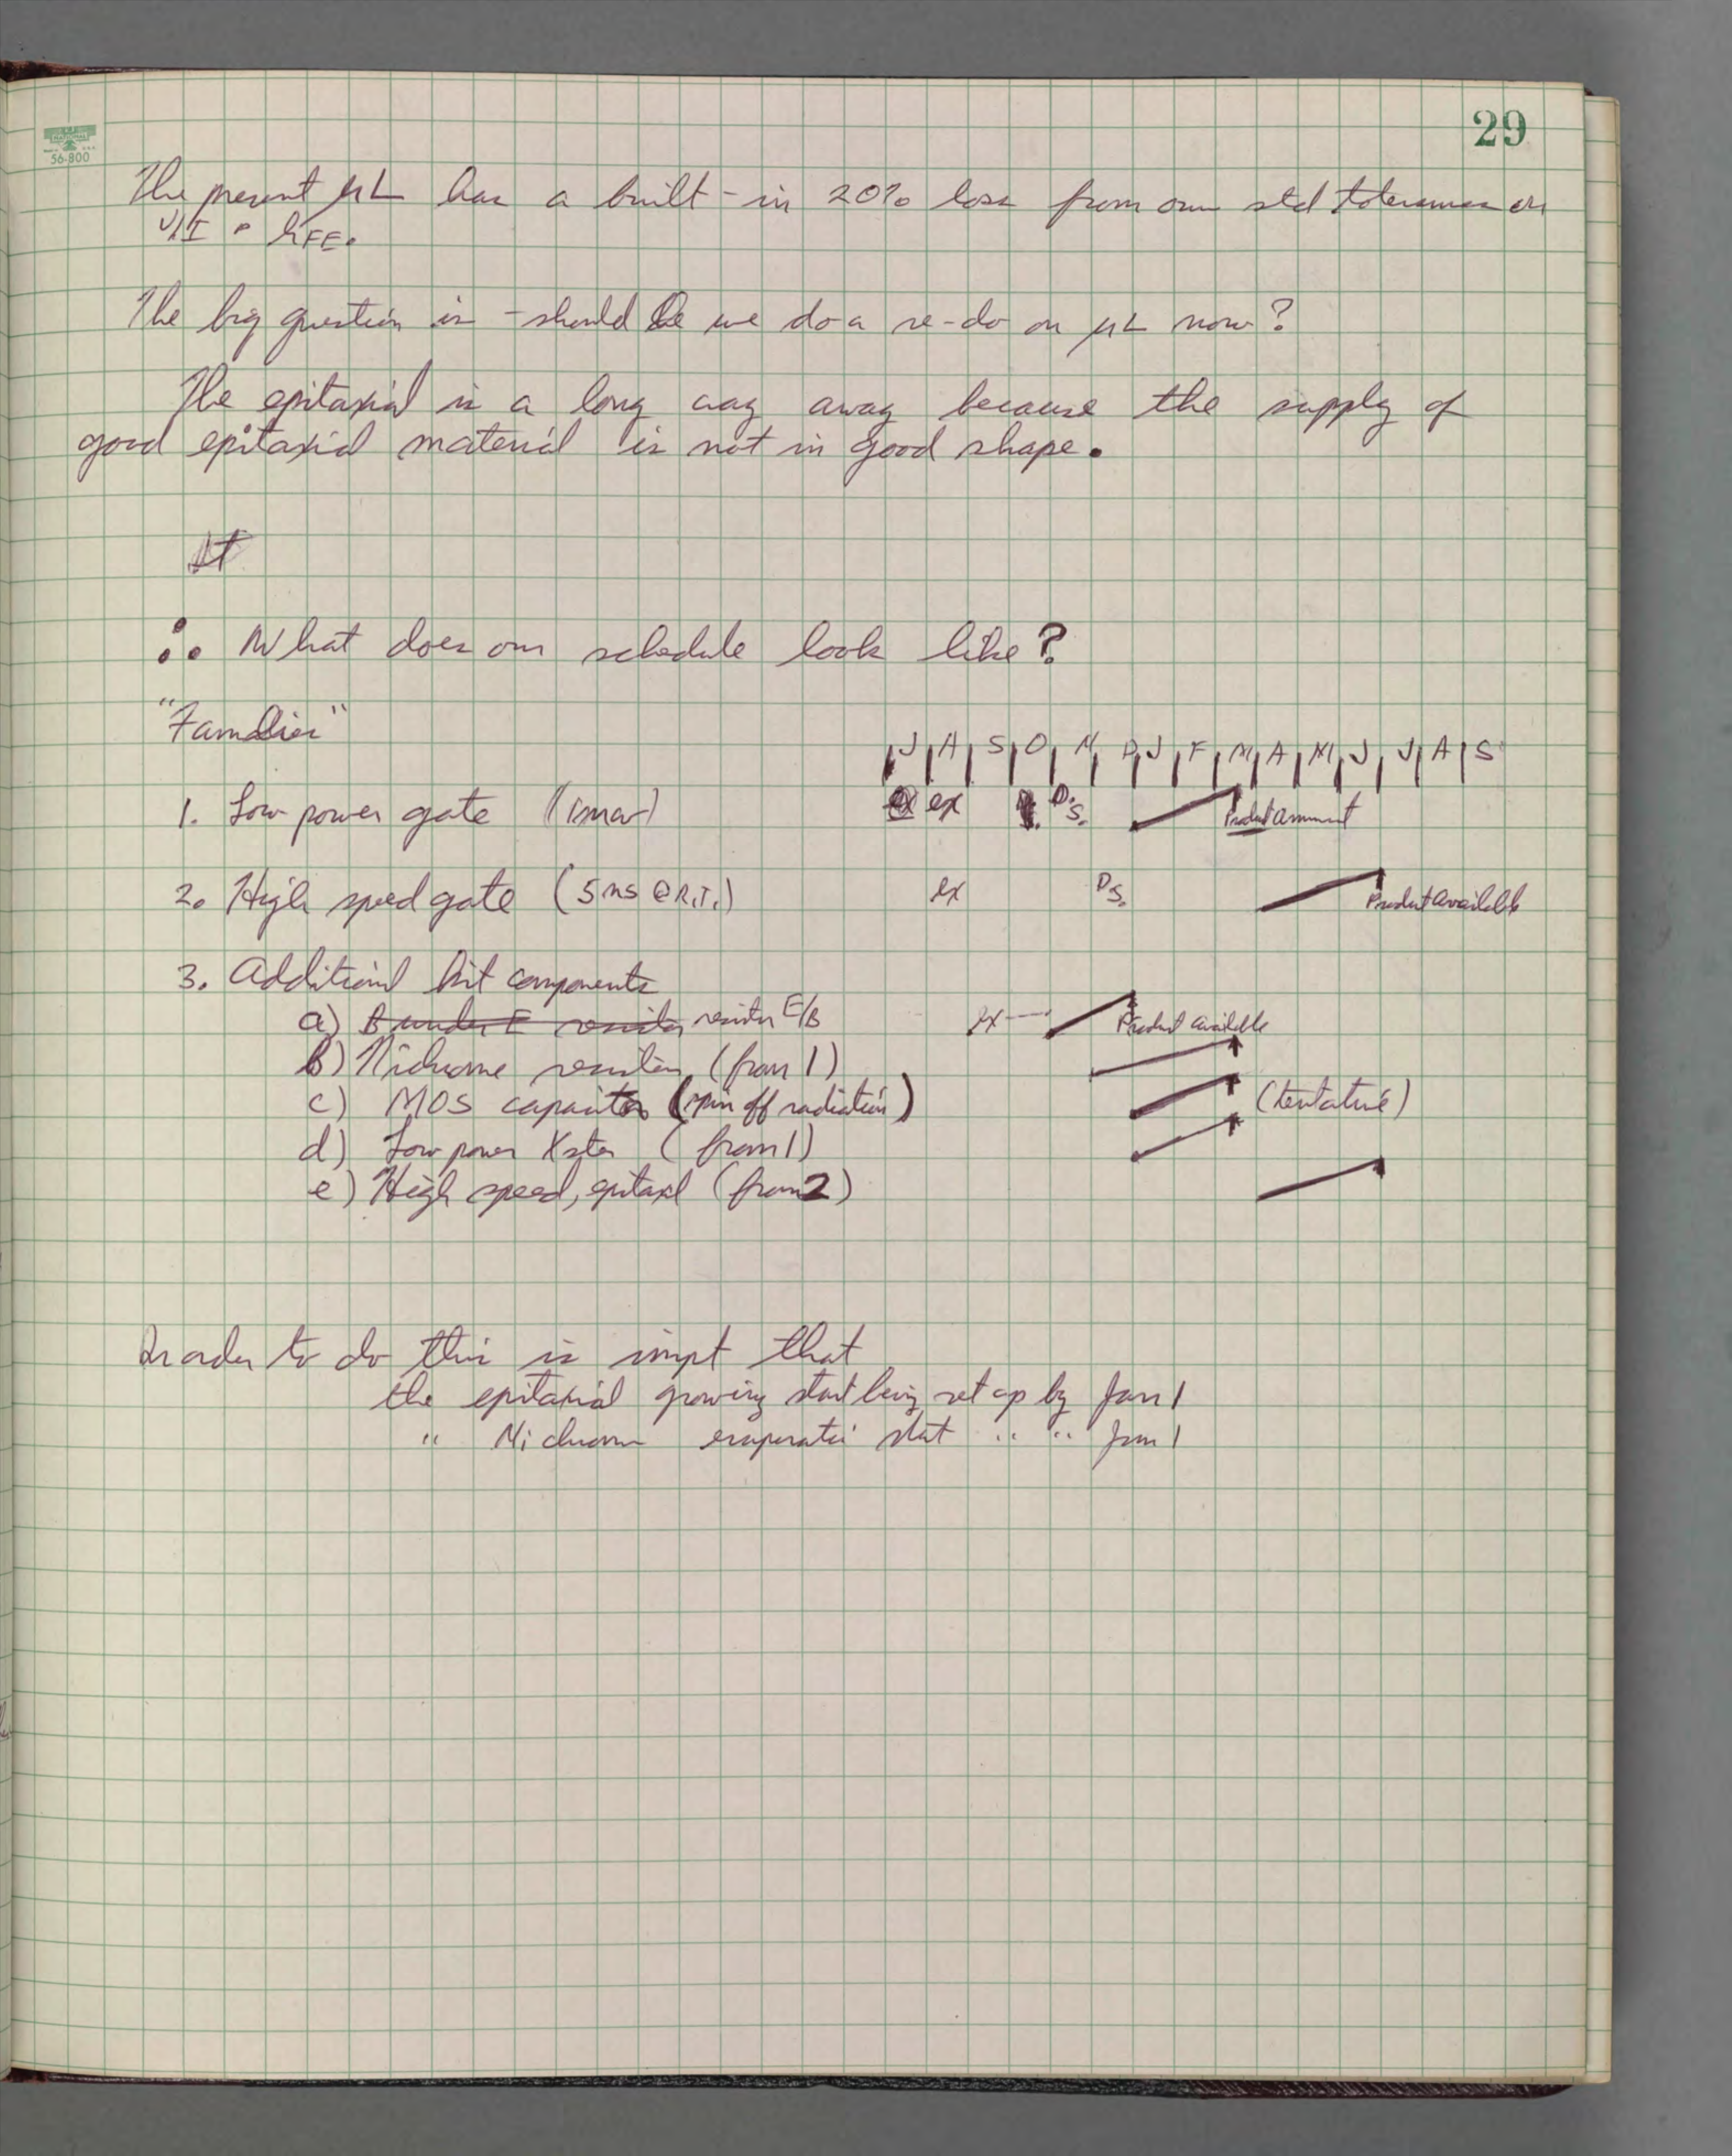 29
56-800
The present µL has a built-in 20% loss from our std tolerances on
V/I & hFE.
The big question is - should we do a re-do on µL now?
The epitaxial is a long way away because the supply of
good epitaxial material is not in good shape.
∴ What does our schedule look like?
"Families"
J A S O N D J F M A M J J A S
1. Low power gate (1mw) ex D.S. Product announcement
2. High speed gate (5ns @ R.T.) ex D.S. Product available
3. Additional kit components
a) B under E resistor resistor E/B ex Product available
b) Nichrome resistors (from 1)
c) MOS capacitor (spin off radiation) (tentative)
d) Low power Xstor (from 1)
e) High speed, epitaxl (from 2)
In order to do this is impt that
the epitaxial growing start being set up by Jan 1
" Nichrome evaporation start " " Jan 1